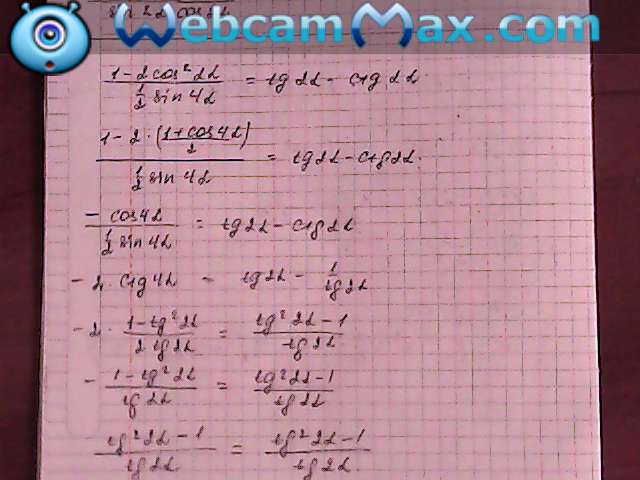 WebcamMax.com
sin 2α cos 2α
(1-2cos²2α)/(½ sin 4α) = tg 2α - ctg 2α
(1-2·((1+cos4α)/2))/(½ sin 4α) = tg2α-ctg2α.
-cos4α/(½ sin 4α) = tg2α-ctg2α
-2·ctg4α = tg2α - 1/tg2α
-2·(1-tg²2α)/(2tg2α) = (tg²2α-1)/tg2α
-(1-tg²2α)/tg2α = (tg²2α-1)/tg2α
(tg²2α-1)/tg2α = (tg²2α-1)/tg2α.